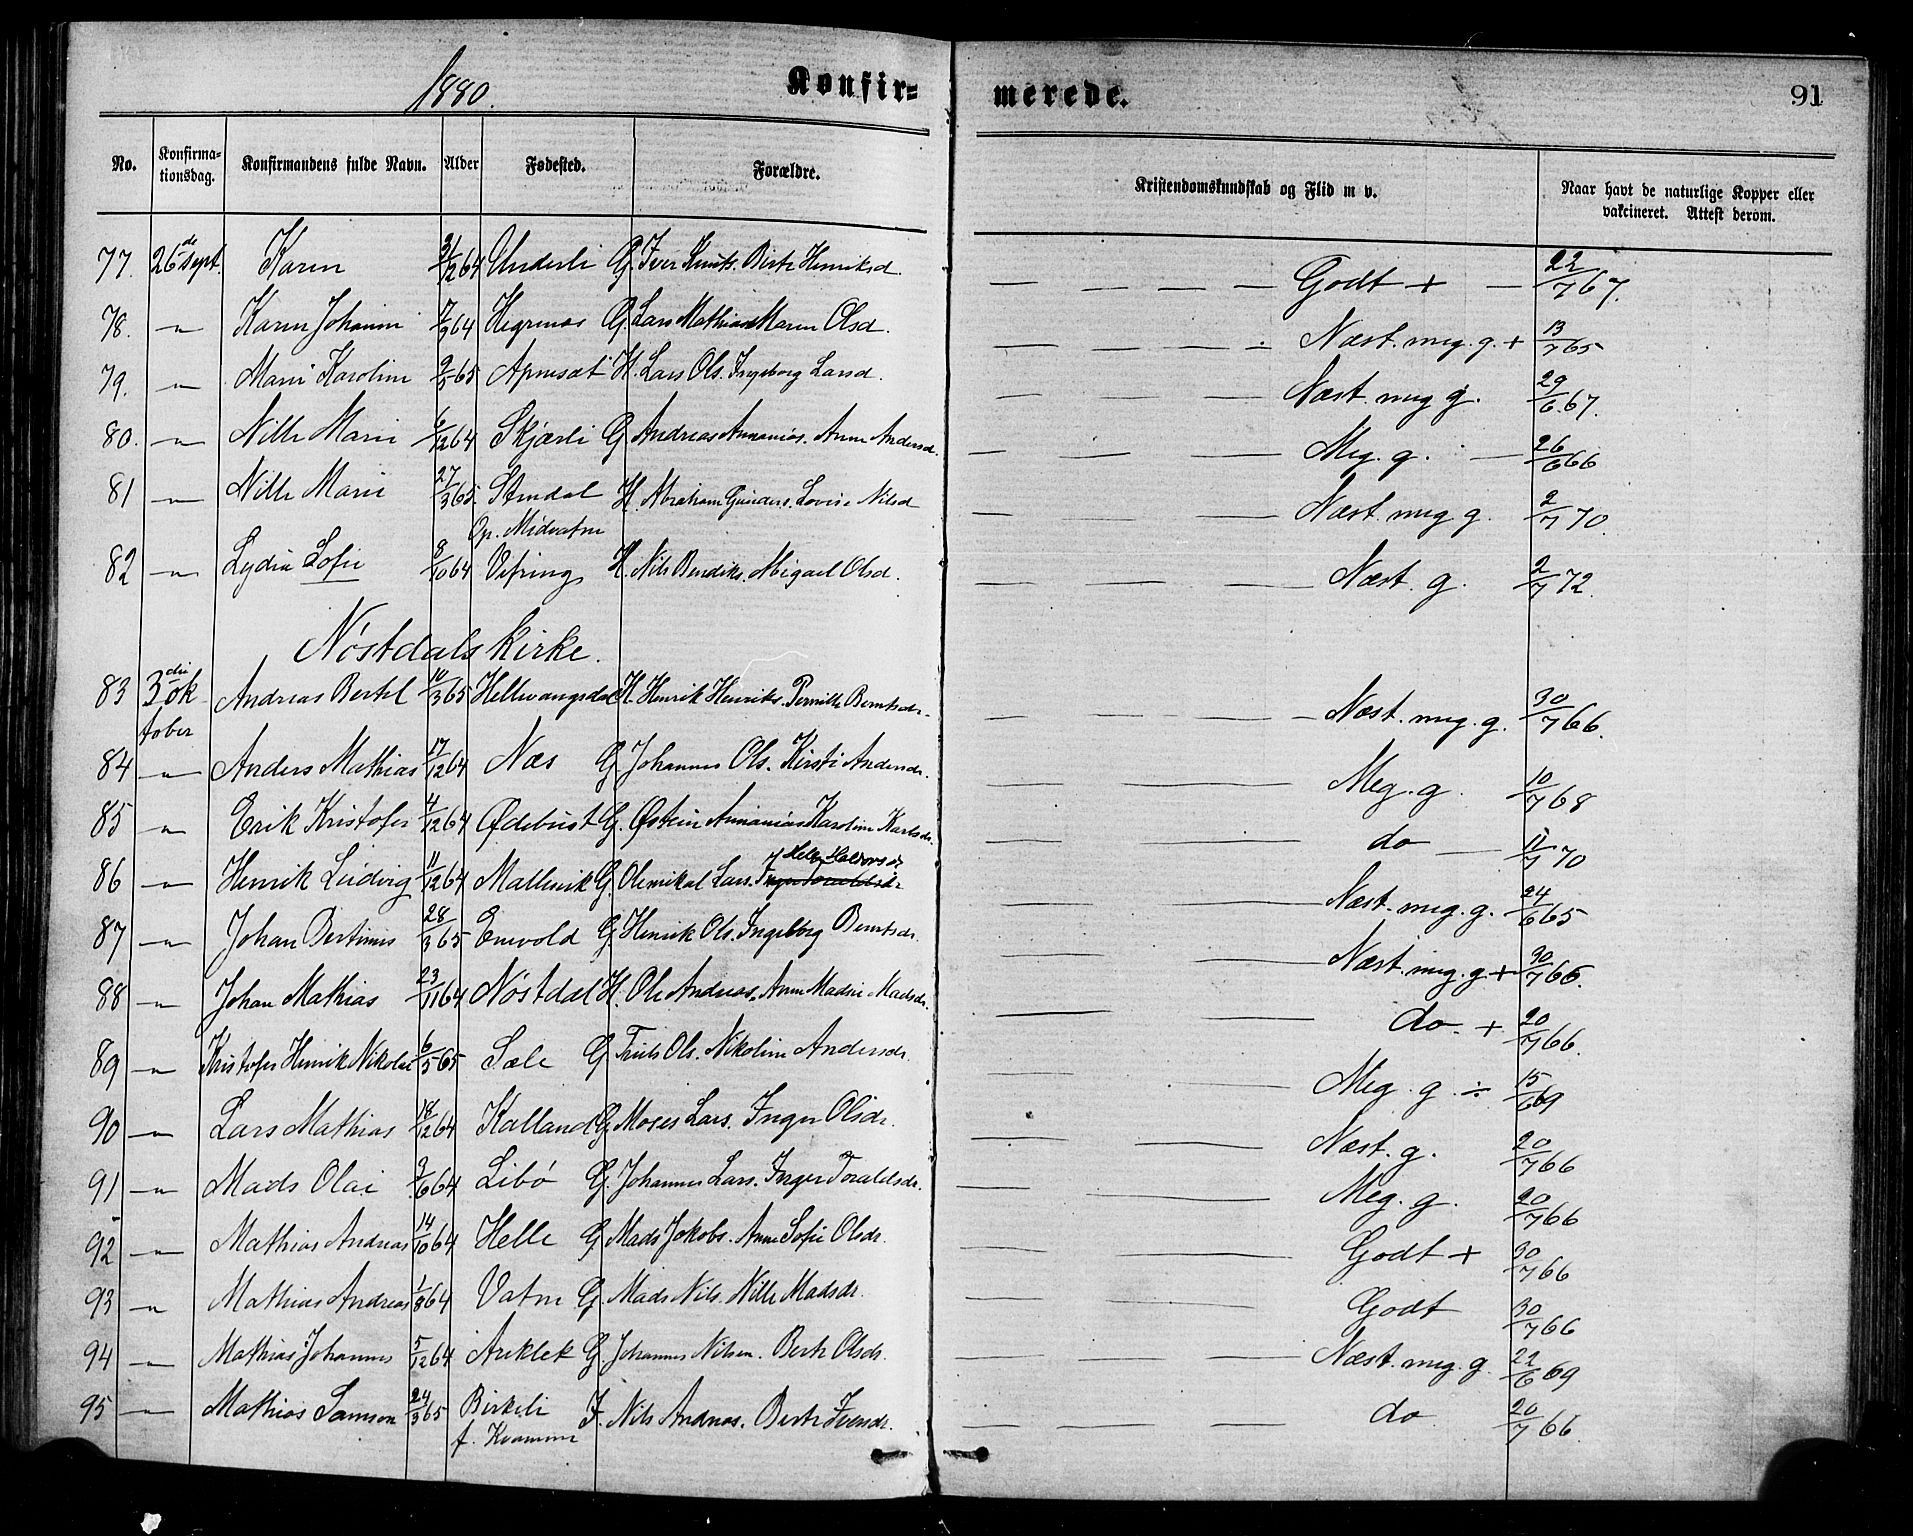 1880. Konfirmerede. 91
No. Konfirmationsdag. Konfirmandens fulde Navn. Alder Fødested. Forældre. Kristendomskundskab og Flid m v. Naar havt de naturlige Kopper eller vakcineret. Attest derom.
77. 26de Sept. Karen 21/12 64 Underli G. Iver Knuts. Birte Henriksd. — — — — Godt + — 22/7 67.
78. „ Karen Johanne 7/9 64 Hegrenes G. Lars Mathias Maren Olsd. — — — Næst. meg. g. + 13/7 65
79. „ Marie Karoline 9/5 65 H. Lars Ols. Ingeborg Larsd. — — — Næst. meg g. 29/6 67.
80. „ Nille Marie 6/12 64 Skjærli G Andreas Annanias. Anne Andersd. — — — Meg. g. — 26/6 66
81 „ Nille Marie 27/3 65. Stendal H. Abraham Gunders. Lovise Nilsd — — — Næst. meg g. 2/7 70.
Op. Midvatne
82 „ Lydia Sofie 8/10 64 Vefring H. Nils Bendiks. Abigael Olsd. — — — Næst. g. 2/7 72.
Nøstdals kirke.
83 3die oktober Andreas Bertel 10/3 65 H. Henrik Henriks. Pernille Berntsdr. — — — Næst. meg. g. 30/7 66.
84 „ Anders Mathias 17/12 64 Næs G Johannes Ols. Kirsti Andersdr. — — Meg. g. 10/7 68
85 „ Erik Kristofer 4/12 64 Ødebust G. Østein Annanias Karoline Karlsdr. — — do — 11/7 70
86 „ Henrik Ludvig 11/12 64 G. Olemikal Lars. Inger Toraldsdr. — — Næst. meg. g. 24/6 65
87 „ Johan Bertinus 28/3 65 Enevold G Henrik Ols. Ingeborg Berntsdr. — — Næst. meg. g + 30/7 66.
88 „ Johan Mathias 23/11 64 Nøstdal H. Ole Andreas. Anne Madsdr. — — do. + 20/7 66.
89 „ Kristofer Henrik Nikolai 6/5 65 Sæle G Truls Ols. Nikoline Andersdr. — — Meg. g. ÷ 15/6 69
90 „ Lars Mathias 18/12 64 Kalland G Moses Lars. Inger Olsdr. — — Næst. g. 20/7 66
91 „ Mads Olai 9/6 64 Libø G. Johannes Lars. Inger Toraldsdr. — — Meg. g. 20/7 66
92 „ Mathias Andreas 14/10 64 Helle G Mads Jakobs. Anne Sofie Olsdr. — — Godt + 30/7 66
93 „ Mathias Andreas 1/8 64 Vatne G Mads Nils. Nille Madsdr. — — Godt 30/7 66
94 „ Mathias Johannes 5/12 64 Areklet G Johannes Nilsen. Berte Olsdr. — — — Næst. meg. g 22/6 69
95 „ Mathias Samson 24/3 65 Birkeli F. Nils Andreas. Berte Iversdr. — — do. 20/7 66.
f. Kvamme